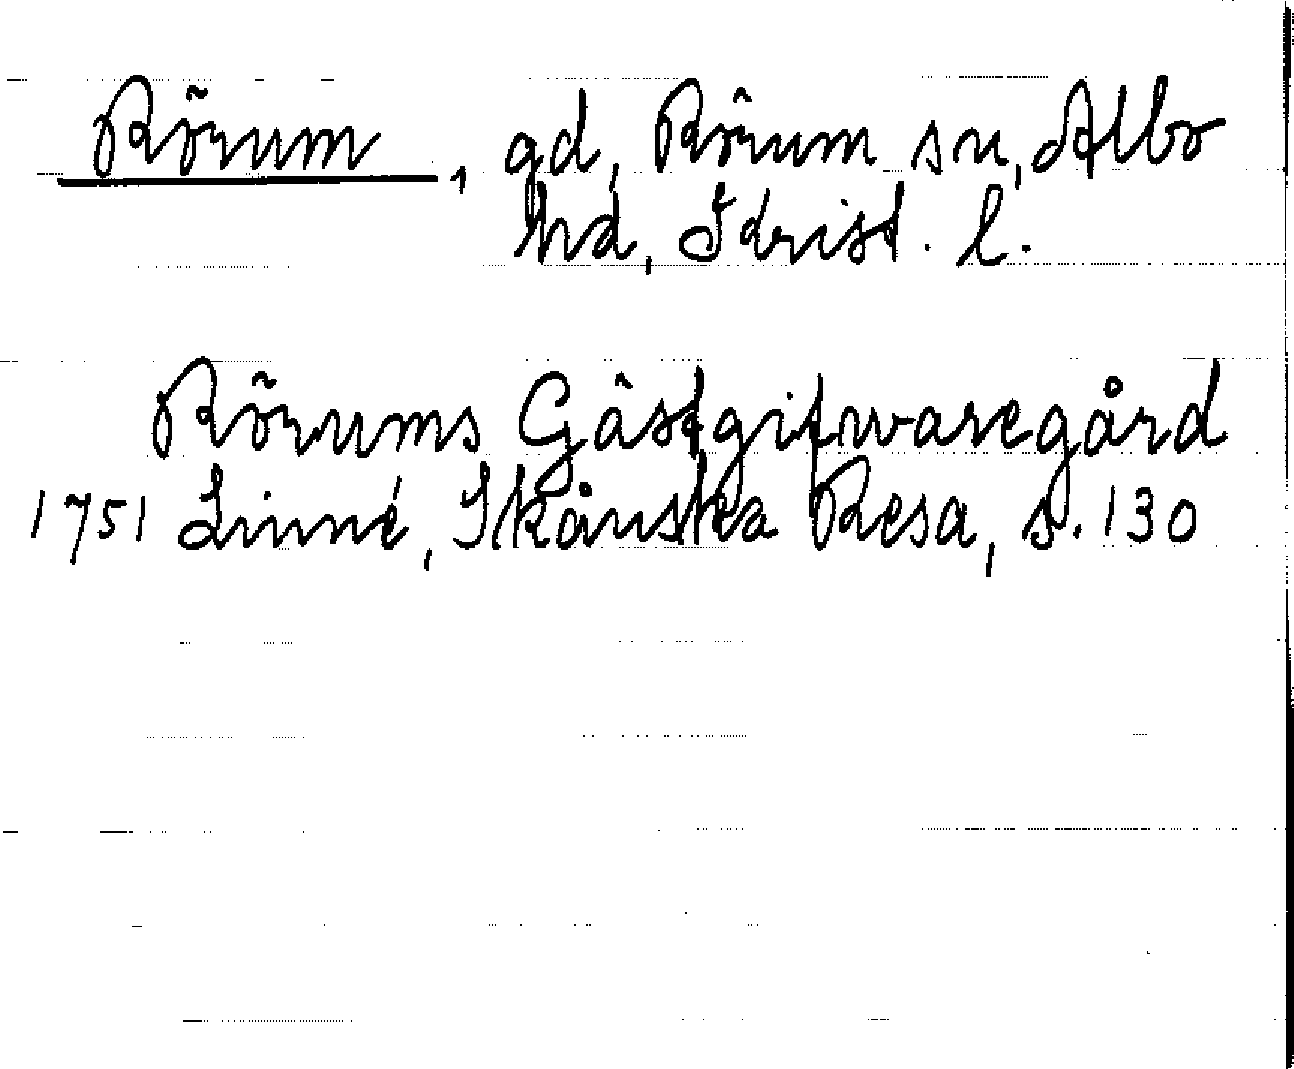 Rörum, gd, Rörum sn, Albo
hd, Krist. l.
Rörums Gästgifwaregård
1751 Linné, Skånska Resa, s. 130